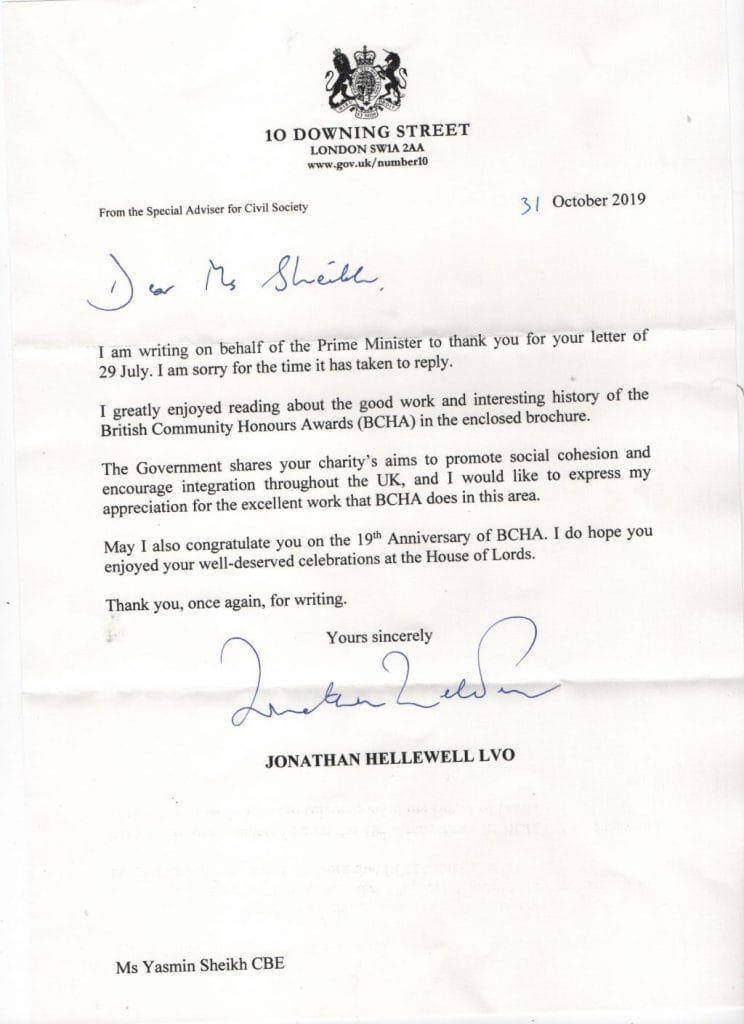 10 DOWNING STREET
LONDON SW1A 2AA
www.gov.uk/number10
From the Special Adviser for Civil Society
31 October 2019
Dear Ms Sheikh,
I am writing on behalf of the Prime Minister to thank you for your letter of
29 July. I am sorry for the time it has taken to reply.
I greatly enjoyed reading about the good work and interesting history of the
British Community Honours Awards (BCHA) in the enclosed brochure.
The Government shares your charity's aims to promote social cohesion and
encourage integration throughout the UK, and I would like to express my
appreciation for the excellent work that BCHA does in this area.
May I also congratulate you on the 19th Anniversary of BCHA. I do hope you
enjoyed your well-deserved celebrations at the House of Lords.
Thank you, once again, for writing.
Yours sincerely
Jonathan Hellewell
JONATHAN HELLEWELL LVO
Ms Yasmin Sheikh CBE